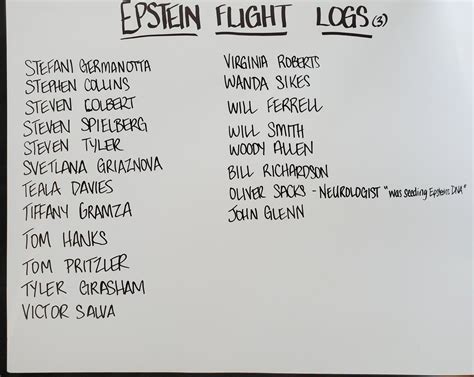 EPSTEIN FLIGHT LOGS (3)
STEFANI GERMANOTTA
STEPHEN COLLINS
STEVEN COLBERT
STEVEN SPIELBERG
STEVEN TYLER
SVETLANA GRIAZNOVA
TEALA DAVIES
TIFFANY GRAMZA
TOM HANKS
TOM PRITZLER
TYLER GRASHAM
VICTOR SALVA
VIRGINIA ROBERTS
WANDA SIKES
WILL FERRELL
WILL SMITH
WOODY ALLEN
BILL RICHARDSON
OLIVER SACKS - NEUROLOGIST "was seeding Epstein DNA"
JOHN GLENN